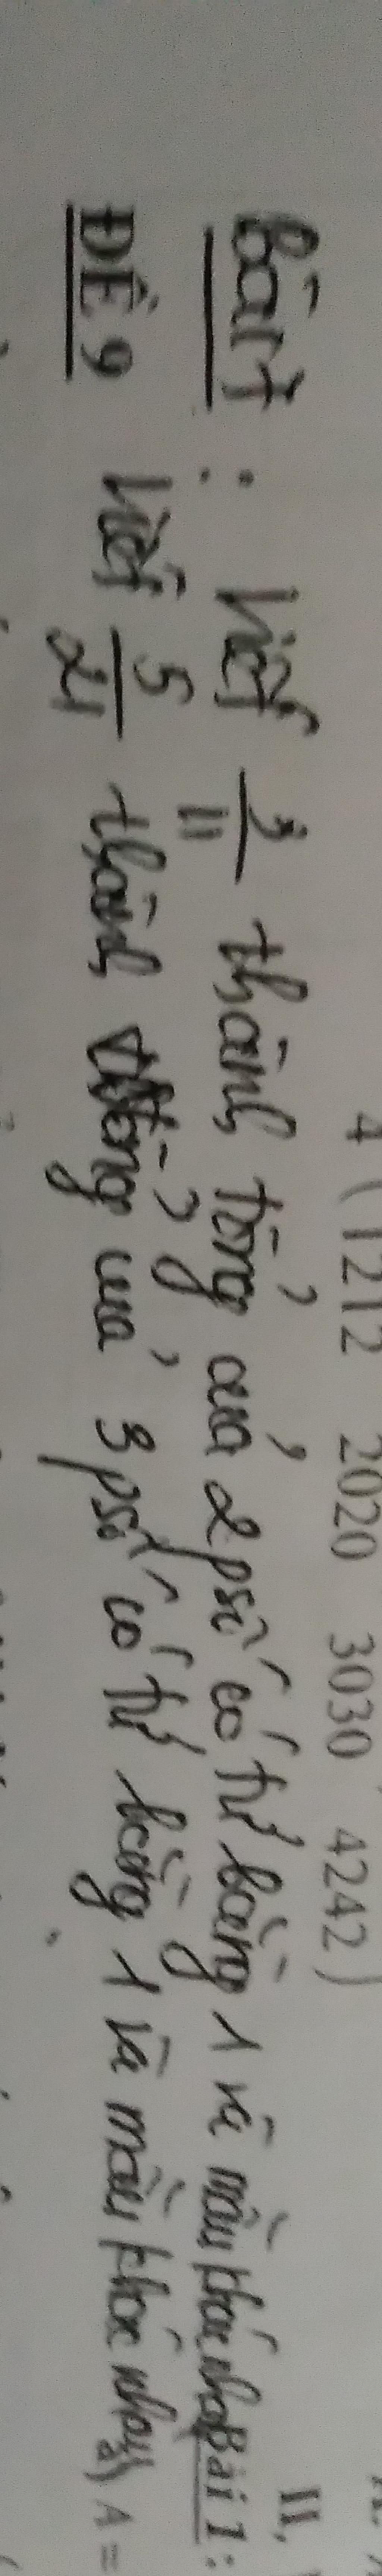 4 ( 1212 2020 3030 4242 )
II.
Bài 7 : Viết 3/11 thành tổng của 2 psố có tử bằng 1 và mẫu khác nhau
Bài 1:
ĐỀ 9 Viết 5/21 thành tổng của 3 psố có tử bằng 1 và mẫu khác nhau
A =